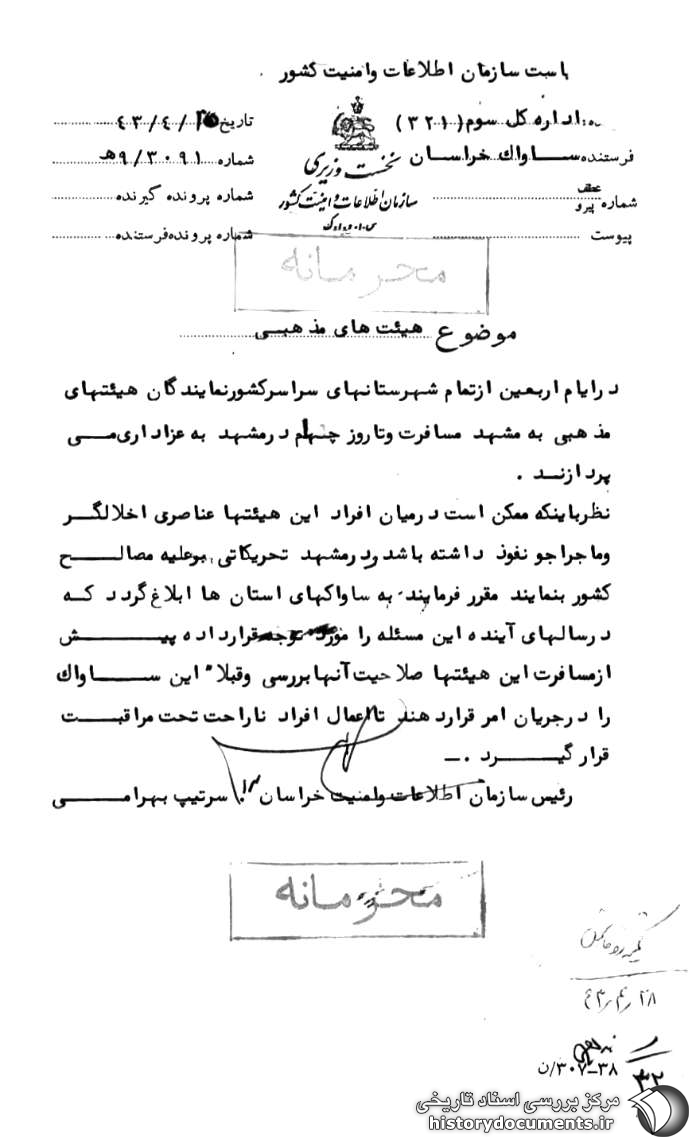 است سازمان اطلاعات وامنیت کشور .
ه: اداره کل سوم (۳۲۱)
تاریخ ۴۳/۴/۲۵
فرستنده ســاواك خراسـان
شماره ۹/۳۰۹۱هـ
نخست وزیری
شماره پیرو عطف
سازمان اطلاعات و امنیت کشور
شماره پرونده گیرنده
س.ا.و.ا.ک
پیوست
شماره پرونده فرستنده
محرمانه
موضوع هیئت های مذهبــی
درایام اربعین ازتمام شهرستانهای سراسرکشورنمایندگان هیئتهای
مذهبی به مشهد مسافرت وتا روز چهلم درمشهد به عزاداری مــی
پردازنــد .
نظرباینکه ممکن است درمیان افراد این هیئتها عناصری اخلالگــر
وماجراجو نفوذ داشته باشد ودرمشهد تحریکاتی برعلیه مصالــــح
کشور بنمایند مقرر فرمایند به ساواکهای استان ها ابلاغ گردد کــه
درسالهای آینده این مسئله را مورد توجه قرارداده پیــــــــش
ازمسافرت این هیئتها صلاحیت آنها بررسی وقبلاً این ســــاواك
را درجریان امر قراردهند تااعمال افراد ناراحت تحت مراقبــت
قرار گیــــرد .ــ
رئیس سازمان اطلاعات وامنیت خراسان . سرتیپ بهرامــــی
محرمانه
۴۳/۴/۲۸
۳۰۷-۳۸/ن
۳۲
مرکز بررسی اسناد تاریخی
historydocuments.ir